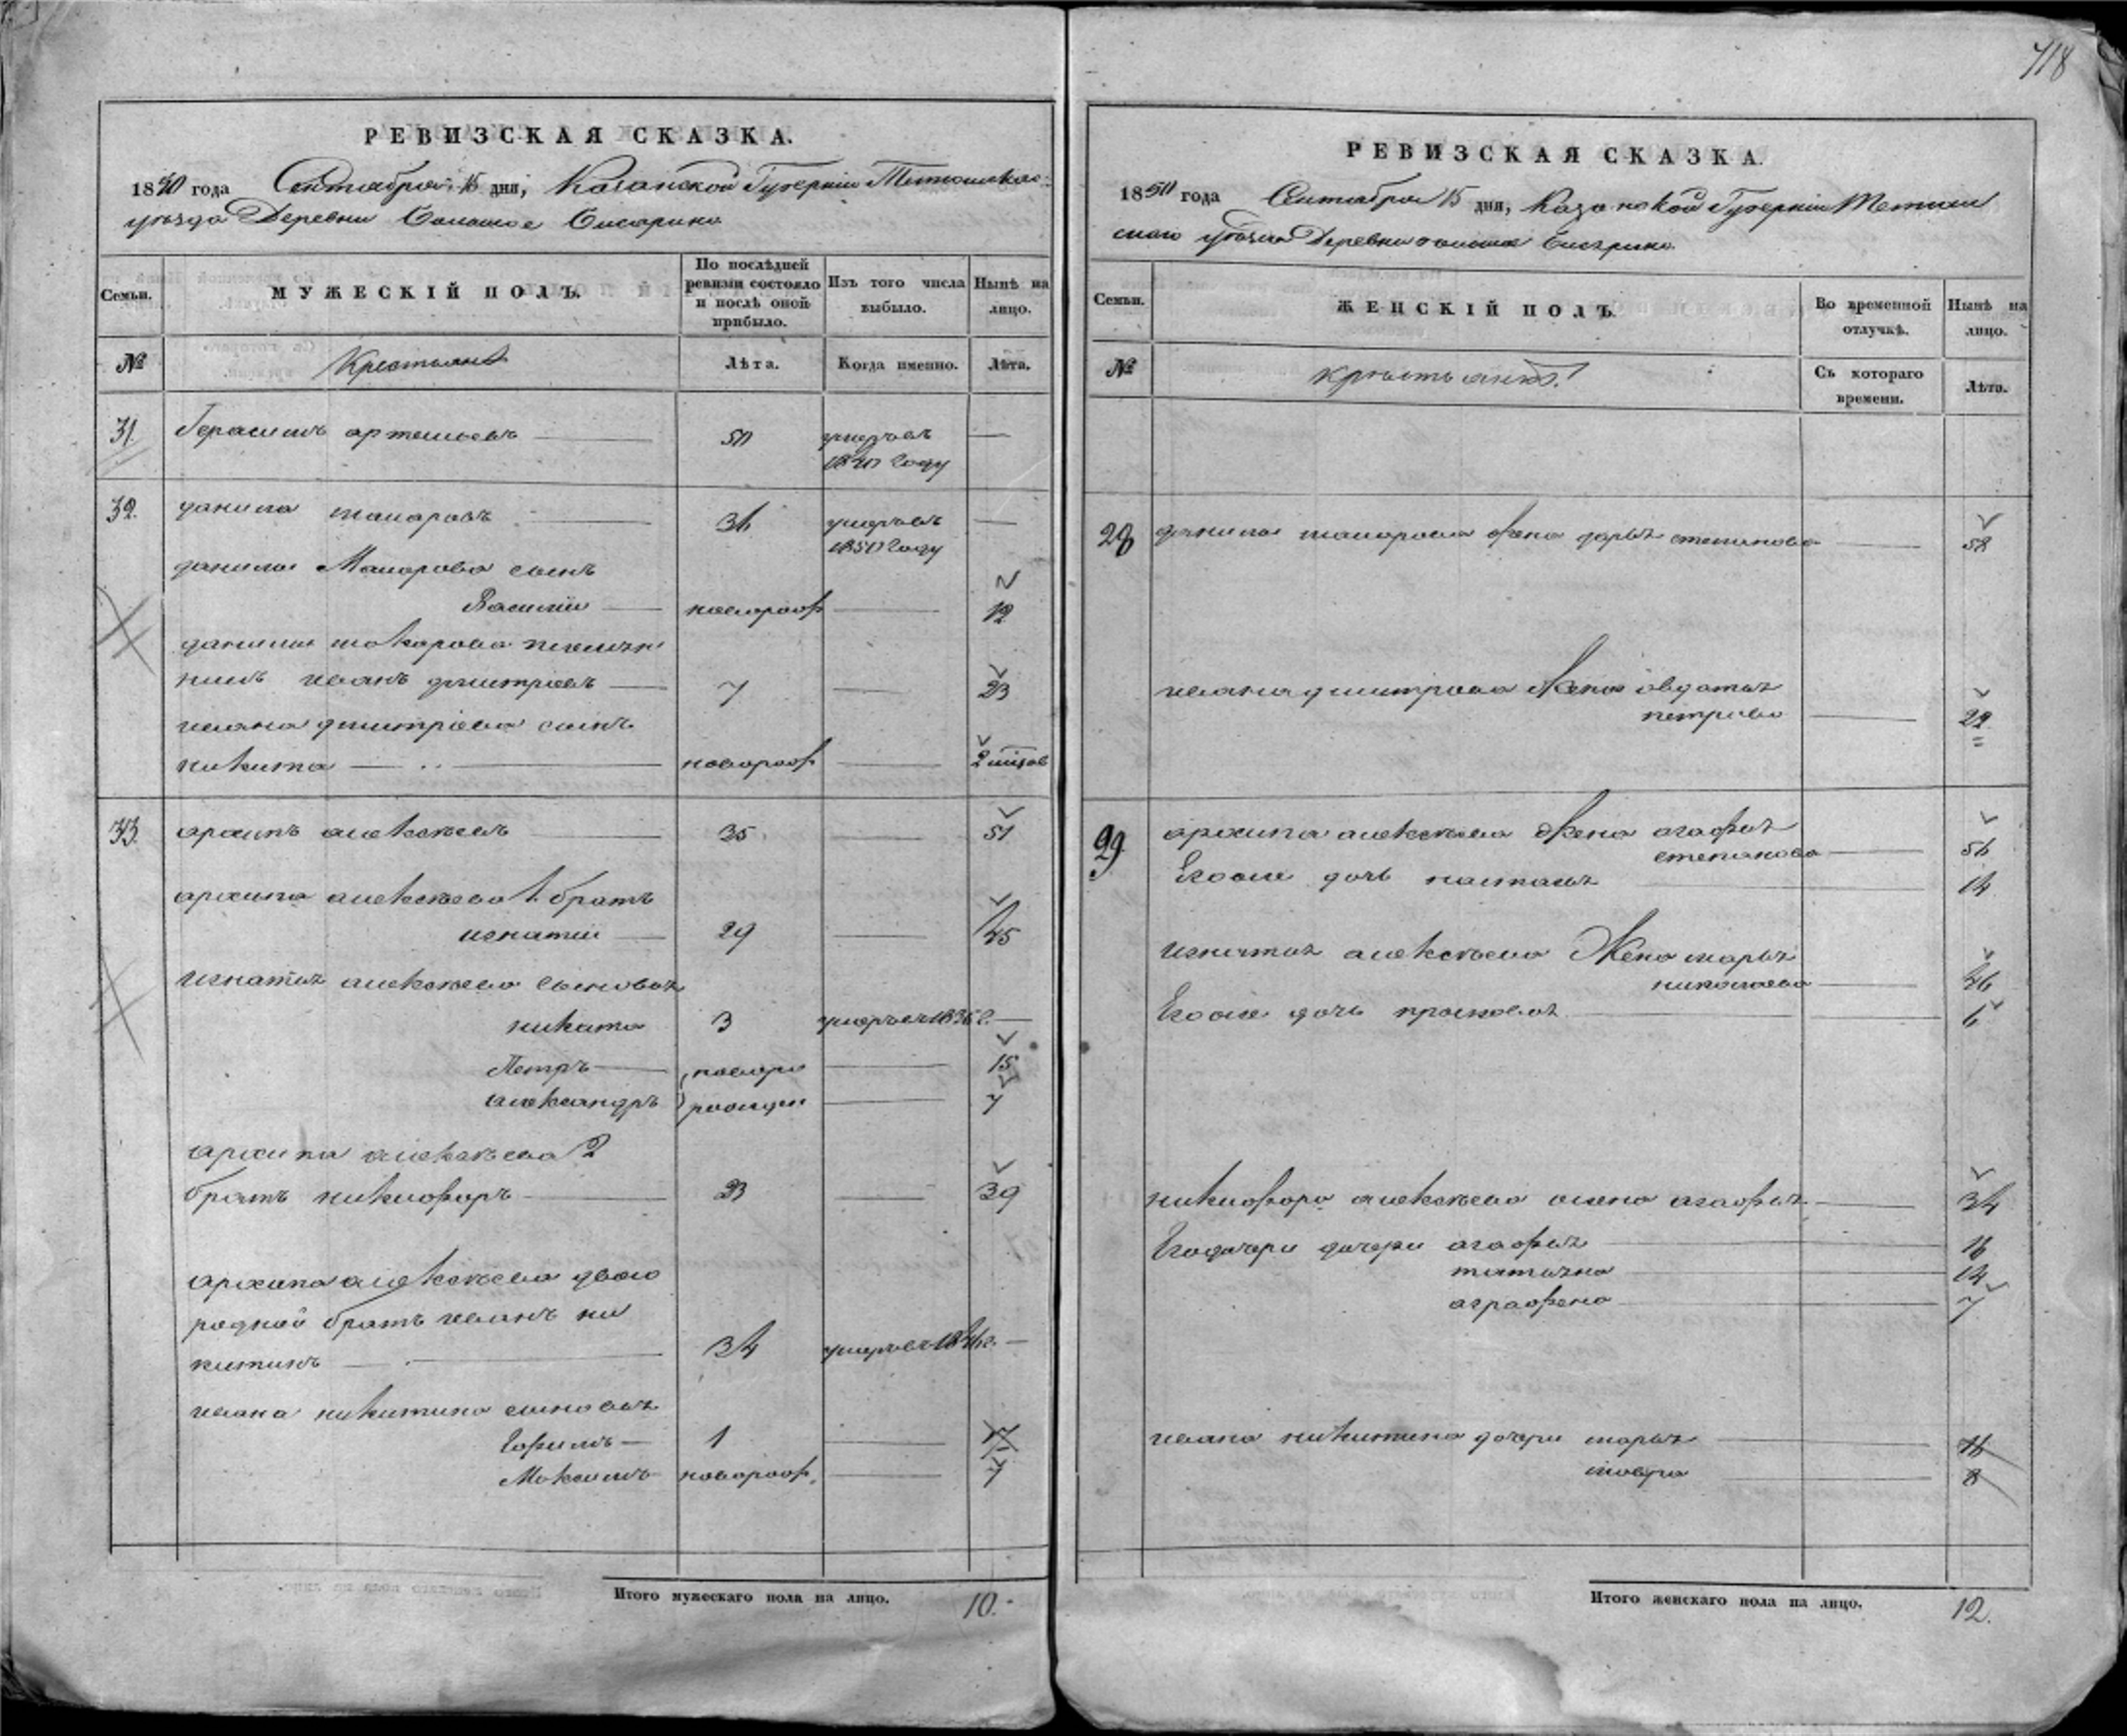 718
РЕВИЗСКАЯ СКАЗКА.
1850 года Сентября 15 дня, Казанской Губернии Тетюшскаго
уѣзда Деревни Большое
Семьи.
МУЖЕСКІЙ ПОЛЪ.
По послѣдней ревизіи состояло и послѣ оной прибыло.
Изъ того числа выбыло.
Нынѣ на лицо.
№
Крестьянъ
Лѣта.
Когда именно.
Лѣта.
31. Герасимъ артемьевъ 50 умеръвъ —
1840 году
32. данила макаровъ 36 умеръвъ —
1850 году
данилы Макарова сынъ
Василій новорож 12
данилы макарова племян
никъ иванъ дмитріевъ 7 23
ивана дмитріева сынъ
никита новорож 2 мѣсяцов
33. архипъ алексѣевъ 35 51
архипа алексѣева 1. братъ
игнатіи 29 45
игнатья алексѣева сыновья
никита 3 умеръвъ 1836 г. —
Петръ новоро 15
александръ рожден 7
архипа алексѣева 2
братъ никифоръ 23 39
архипа алексѣева двою
родной братъ иванъ ни
китинъ 34 умеръвъ —
ивана никитина сыновья
Ефимъ 1 17
Максимъ новорож. 7
Итого мужескаго пола на лицо. 10.
РЕВИЗСКАЯ СКАЗКА.
1850 года Сентября 15 дня, Казанской Губерніи Тетюш
скаго уѣзда Деревни
Семьи.
ЖЕНСКІЙ ПОЛЪ.
Во временной отлучкѣ.
Нынѣ на лицо.
№
крестьянъ
Съ котораго времени.
Лѣта.
28 данилы макарова жена дарья степанова 58
ивана дмитрева Жена авдотья
петрова 22
29 архипа алексѣева жена агафья
степанова 56
Его дочь настасья 14
игнатья алексѣева Жена марья
николаева 46
Его дочь прасковья 6
никифора алексѣева жена агафья 34
дочери агафья 16
татьяна 14
аграфена 7
ивана никитина дочери марья 16
мавра 8
Итого женскаго пола на лицо. 12.